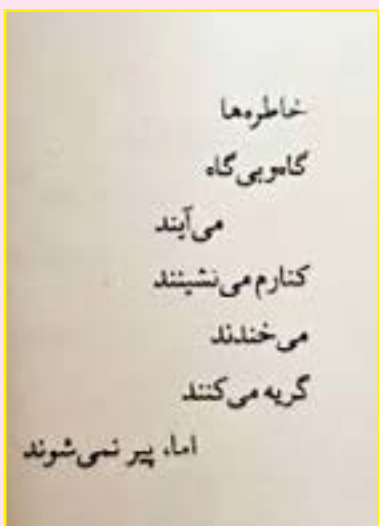 خاطره‌ها
گاه‌و‌بی‌گاه
می‌آیند
کنارم می‌نشینند
می‌خندند
گریه می‌کنند
اما، پیر نمی‌شوند